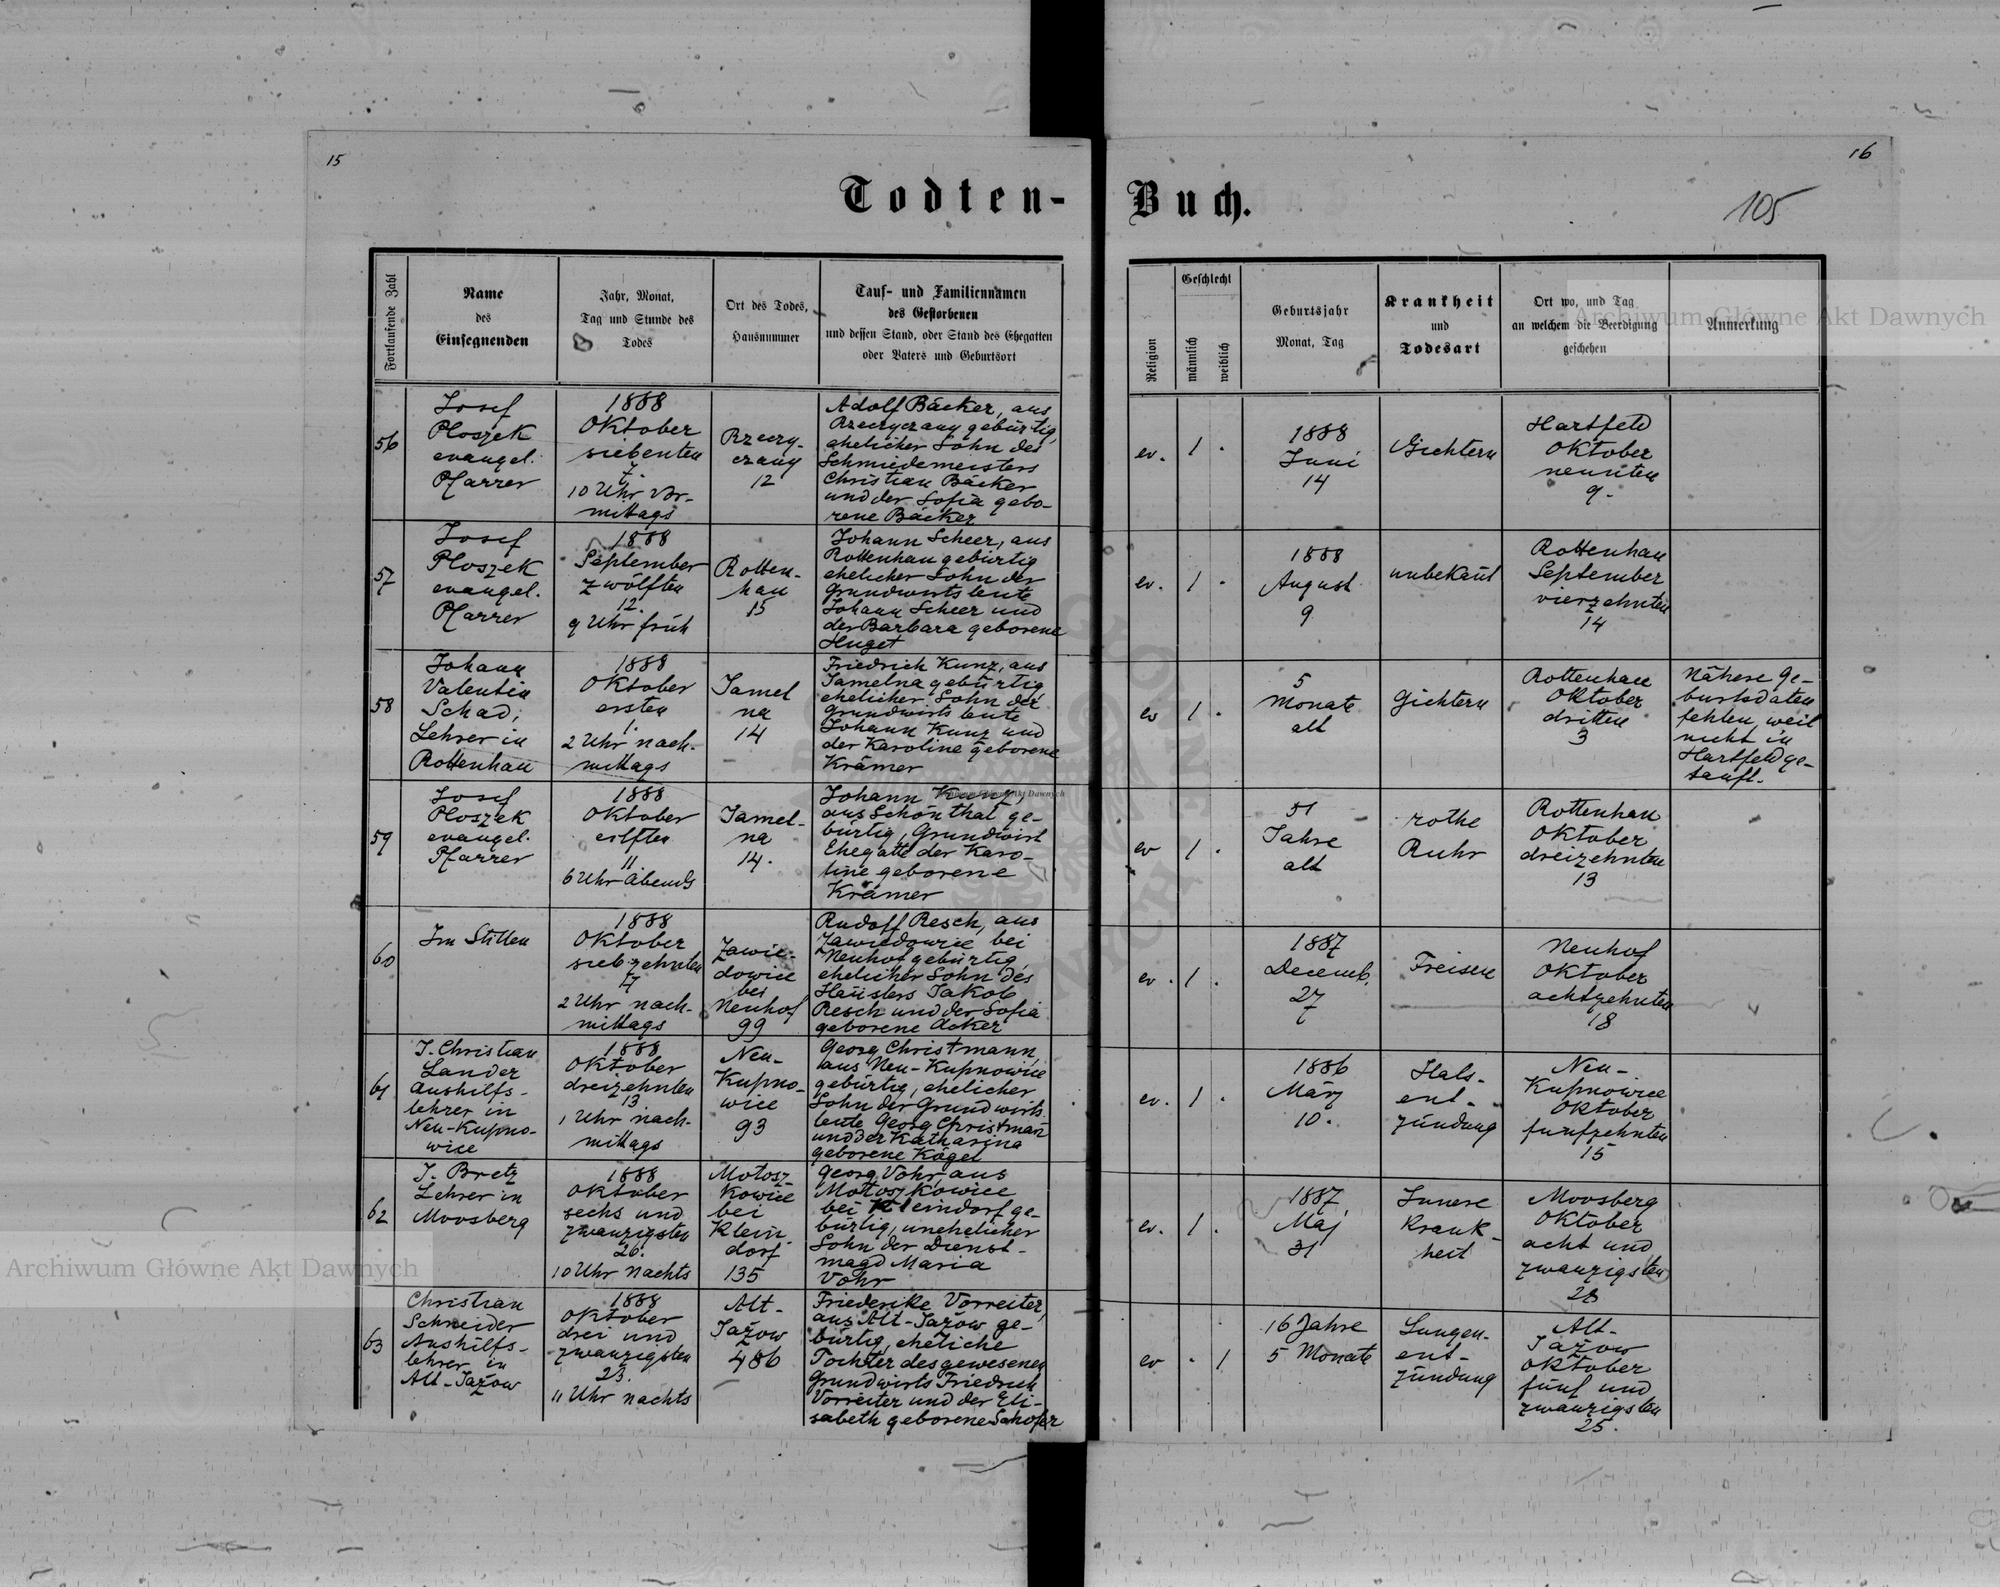 15
16
Todten-
Buch.
105
Fortlaufende Zahl
Name
des
Einsegnenden
Jahr, Monat,
Tag und Stunde des
Todes
Ort des Todes,
Hausnummer
Tauf- und Familiennamen
des Gestorbenen
und dessen Stand, oder Stand des Ehegatten
oder Vaters und Geburtsort
Religion
Geschlecht
männlich
weiblich
Geburtsjahr
Monat, Tag
Krankheit
und
Todesart
Ort wo, und Tag
an welchem die Beerdigung
geschehen
Anmerkung
Archiwum Główne Akt Dawnych
56
Josef
Ploszek
evangel.
Pfarrer
1888
Oktober
siebenten
7.
10 Uhr vor-
mittags
Rzeczy-
czany
12
Adolf Bäcker, aus
Rzeczyczany gebürtig,
ehelicher Sohn des
Schmiedemeisters
Christian Bäcker
und der Sofia gebo-
rene Bäcker
ev.
1
.
1888
Juni
14
Gichtern
Hartfeld
Oktober
neunten
9.
57
Josef
Ploszek
evangel.
Pfarrer
1888
September
zwölften
12.
9 Uhr früh
Rotten-
hau
15
Johann Scheer, aus
Rottenhau gebürtig
ehelicher Sohn der
Grundwirtsleute
Johann Scheer und
der Barbara geborene
Huget
ev.
1
.
1888
August
9
unbekañt
Rottenhau
September
vierzehnten
14
58
Johann
Valentin
Schad,
Lehrer in
Rottenhau
1888
Oktober
ersten
1.
2 Uhr nach-
mittags
Jamel
na
14
Friedrich Kunz, aus
Jamelna gebürtig,
ehelicher Sohn der
Grundwirtsleute
Johann Kunz und
der Karoline geborene
Krämer
ev
1
.
5
Monate
alt
Gichtern
Rottenhau
Oktober
dritten
3
Nähere Ge-
burtsdaten
fehlen, weil
nicht in
Hartfeld ge-
tauft.
59
Josef
Ploszek
evangel.
Pfarrer
1888
Oktober
eilften
11.
6 Uhr Abends
Jamel-
na
14.
Johann Kunz,
aus Schönthal ge-
bürtig, Grundwirt
Ehegatte der Karo-
line geborene
Krämer
Archiwum Główne Akt Dawnych
ev
1
.
51
Jahre
alt
rothe
Ruhr
Rottenhau
Oktober
dreizehnten
13
60
Im Stillen
1888
Oktober
siebzehnten
17
2 Uhr nach-
mittags
Zawie-
dowice
bei
Neuhof
99
Rudolf Resch, aus
Zawiedowice bei
Neuhof gebürtig,
ehelicher Sohn des
Häuslers Jakob
Resch und der Sofia
geborene Acker
ev.
1
.
1887
Decemb.
27
Freisen
Neuhof
Oktober
achtzehnten
18
61
J. Christian
Lander
Aushilfs-
lehrer in
Neu-Kupno-
wice
1888
Oktober
dreizehnten
13
1 Uhr nach-
mittags
Neu-
Kupno-
wice
93
Georg Christmann,
aus Neu-Kupnowice
gebürtig, ehelicher
Sohn der Grundwirts
leute Georg Christmañ
und der Katharina
geborene Kögel
ev.
1
.
1886
März
10.
Hals-
ent-
zündung
Neu-
Kupnowice
Oktober
funfzehnten
15
62
J. Bretz
Lehrer in
Moosberg
1888
Oktober
sechs und
zwanzigsten
26.
10 Uhr Nachts
Motosz-
kowice
bei
Klein-
dorf
135
Georg Vohr, aus
Motoszkowice
bei Kleindorf ge-
bürtig, unehelicher
Sohn der Dienst-
magd Maria
Vohr
ev.
1
.
1887
Maj
31
Innere
Krank-
heit
Moosberg
Oktober
acht und
zwanzigsten
28
Archiwum Główne Akt Dawnych
63
Christian
Schneider
Aushilfs-
lehrer in
Alt-Jażow
1888
Oktober
drei und
zwanzigsten
23.
11 Uhr nachts
Alt-
Jażow
486
Friederike Vorreiter,
aus Alt-Jażow ge-
bürtig, eheliche
Tochter des gewesenen
Grundwirts Friedrich
Vorreiter und der Eli-
sabeth geborene Schofer
ev
.
1
16 Jahre
5 Monate
Lungen-
ent-
zündung
Alt-
Jażow
Oktober
fünf und
zwanzigsten
25.